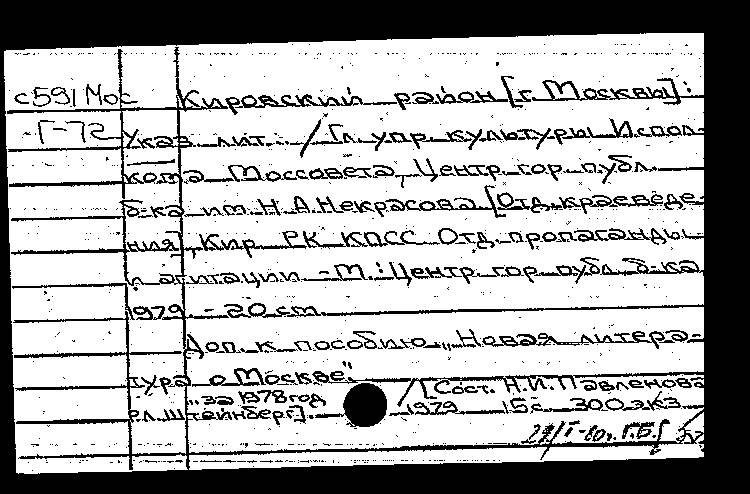 с591Мос Кировский район [г. Москвы]:
Г-72 Указ. лит. / Гл. упр. культуры Испол-
кома Моссовета, Центр. гор. публ.
б-ка им. Н.А.Некрасова [Отд. краеведе-
ния], Кир. РК КПСС Отд. пропаганды
и агитации. -М.: Центр. гор. публ. б-ка,
1979. - 20 см.
Доп. к пособию „Новая литера-
тура о Москве".
„за 1978 год / [Сост. Н.И.Павленова
Р.Л.Штейнберг]. 1979 15с. 300 экз.
29/I-80г. Г.Б.